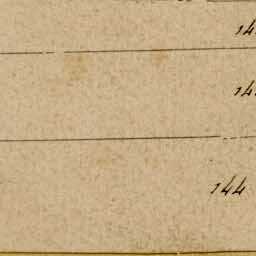 14
14
144